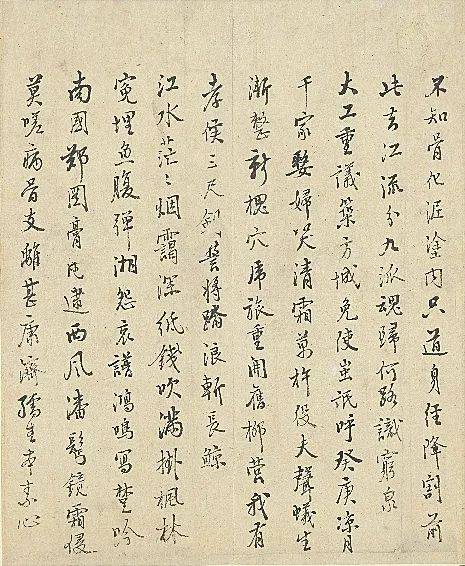 不知骨化泥塗內只道身經降割前
此去江流分九派魂歸何路識窮泉
大工重議築方城免使蚩氓呼癸庚涼月
千家嫠婦哭清霜萬杵役夫聲蟻生
漸整新槐穴虎旅重開舊柳營我有
孝侯三尺劍誓將踏浪斬長鯨
江水茫〻烟靄深紙錢吹滿樹楓林
寃埋魚腹彈湘怨哀譜鴻鳴寫楚吟
南國鄭圖膏屯遠西風潘鬢鏡霜侵
莫嗟病骨支離甚康濟孺生本素心